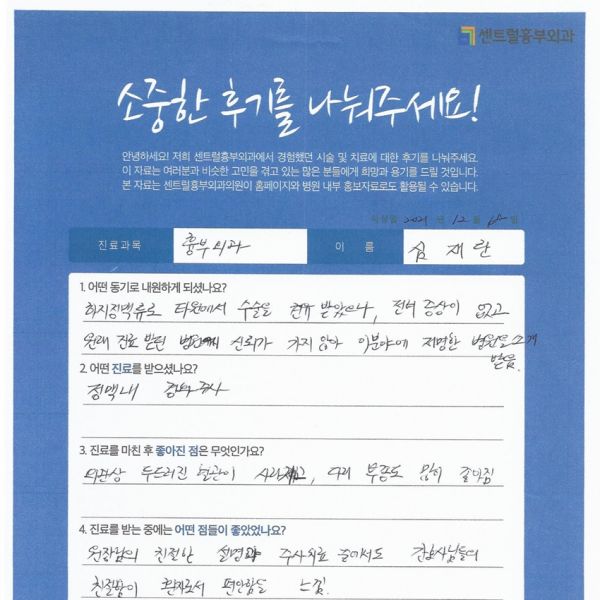 센트럴흉부외과
소중한 후기를 나눠주세요!
안녕하세요! 저희 센트럴흉부외과에서 경험했던 시술 및 치료에 대한 후기를 나눠주세요.
이 자료는 여러분과 비슷한 고민을 겪고 있는 많은 분들에게 희망과 용기를 드릴 것입니다.
본 자료는 센트럴흉부외과의원이 홈페이지와 병원 내부 홍보자료로도 활용될 수 있습니다.
작성일 2021 년 12 월 일
진료과목 흉부외과 이 름 심재란
1. 어떤 동기로 내원하게 되셨나요?
하지정맥류로 타원에서 수술을 권유 받았으나, 전혀 증상이 없고
원래 진료 받던 신뢰가 가지 않아 이분야에 저명한 병원을 소개
받음.
2. 어떤 진료를 받으셨나요?
정맥내 주사
3. 진료를 마친 후 좋아진 점은 무엇인가요?
외관상 두드러진 혈관이 사라지고, 다리 부종도 많이 좋아짐
4. 진료를 받는 중에는 어떤 점들이 좋았었나요?
원장님의 친절한 설명과 주사치료 간호사님들의
친절함이 환자로서 편안함을 느낌.